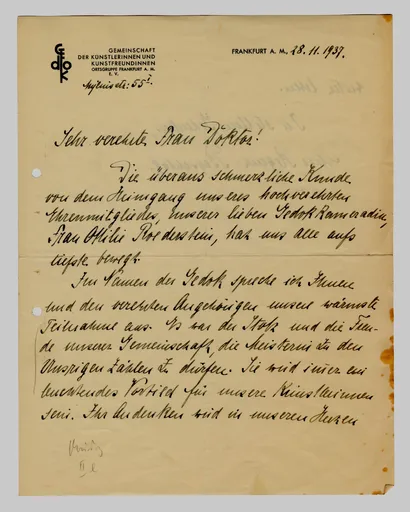 Gedok
GEMEINSCHAFT
DER KÜNSTLERINNEN UND
KUNSTFREUNDINNEN
ORTSGRUPPE FRANKFURT A. M.
E. V.
FRANKFURT A. M., 28.11.1937.
Sehr verehrte Frau Doktor!
Die überaus schmerzliche Kunde
von dem Heimgang unseres hochverehrten
Ehrenmitgliedes, unserer lieben Gedok Kameradin,
Frau Ottilie Roederstein, hat uns alle aufs
tiefste bewegt.
Im Namen der Gedok spreche ich Ihnen
und den verehrten Angehörigen unsere wärmste
Teilnahme aus. Es war der Stolz und die Freu-
de unserer Gemeinschaft, die Meisterin zu den
Unsrigen zählen zu dürfen. Sie wird immer ein
leuchtendes Vorbild für unsere Künstlerinnen
sein. Ihr Andenken wird in unseren Herzen